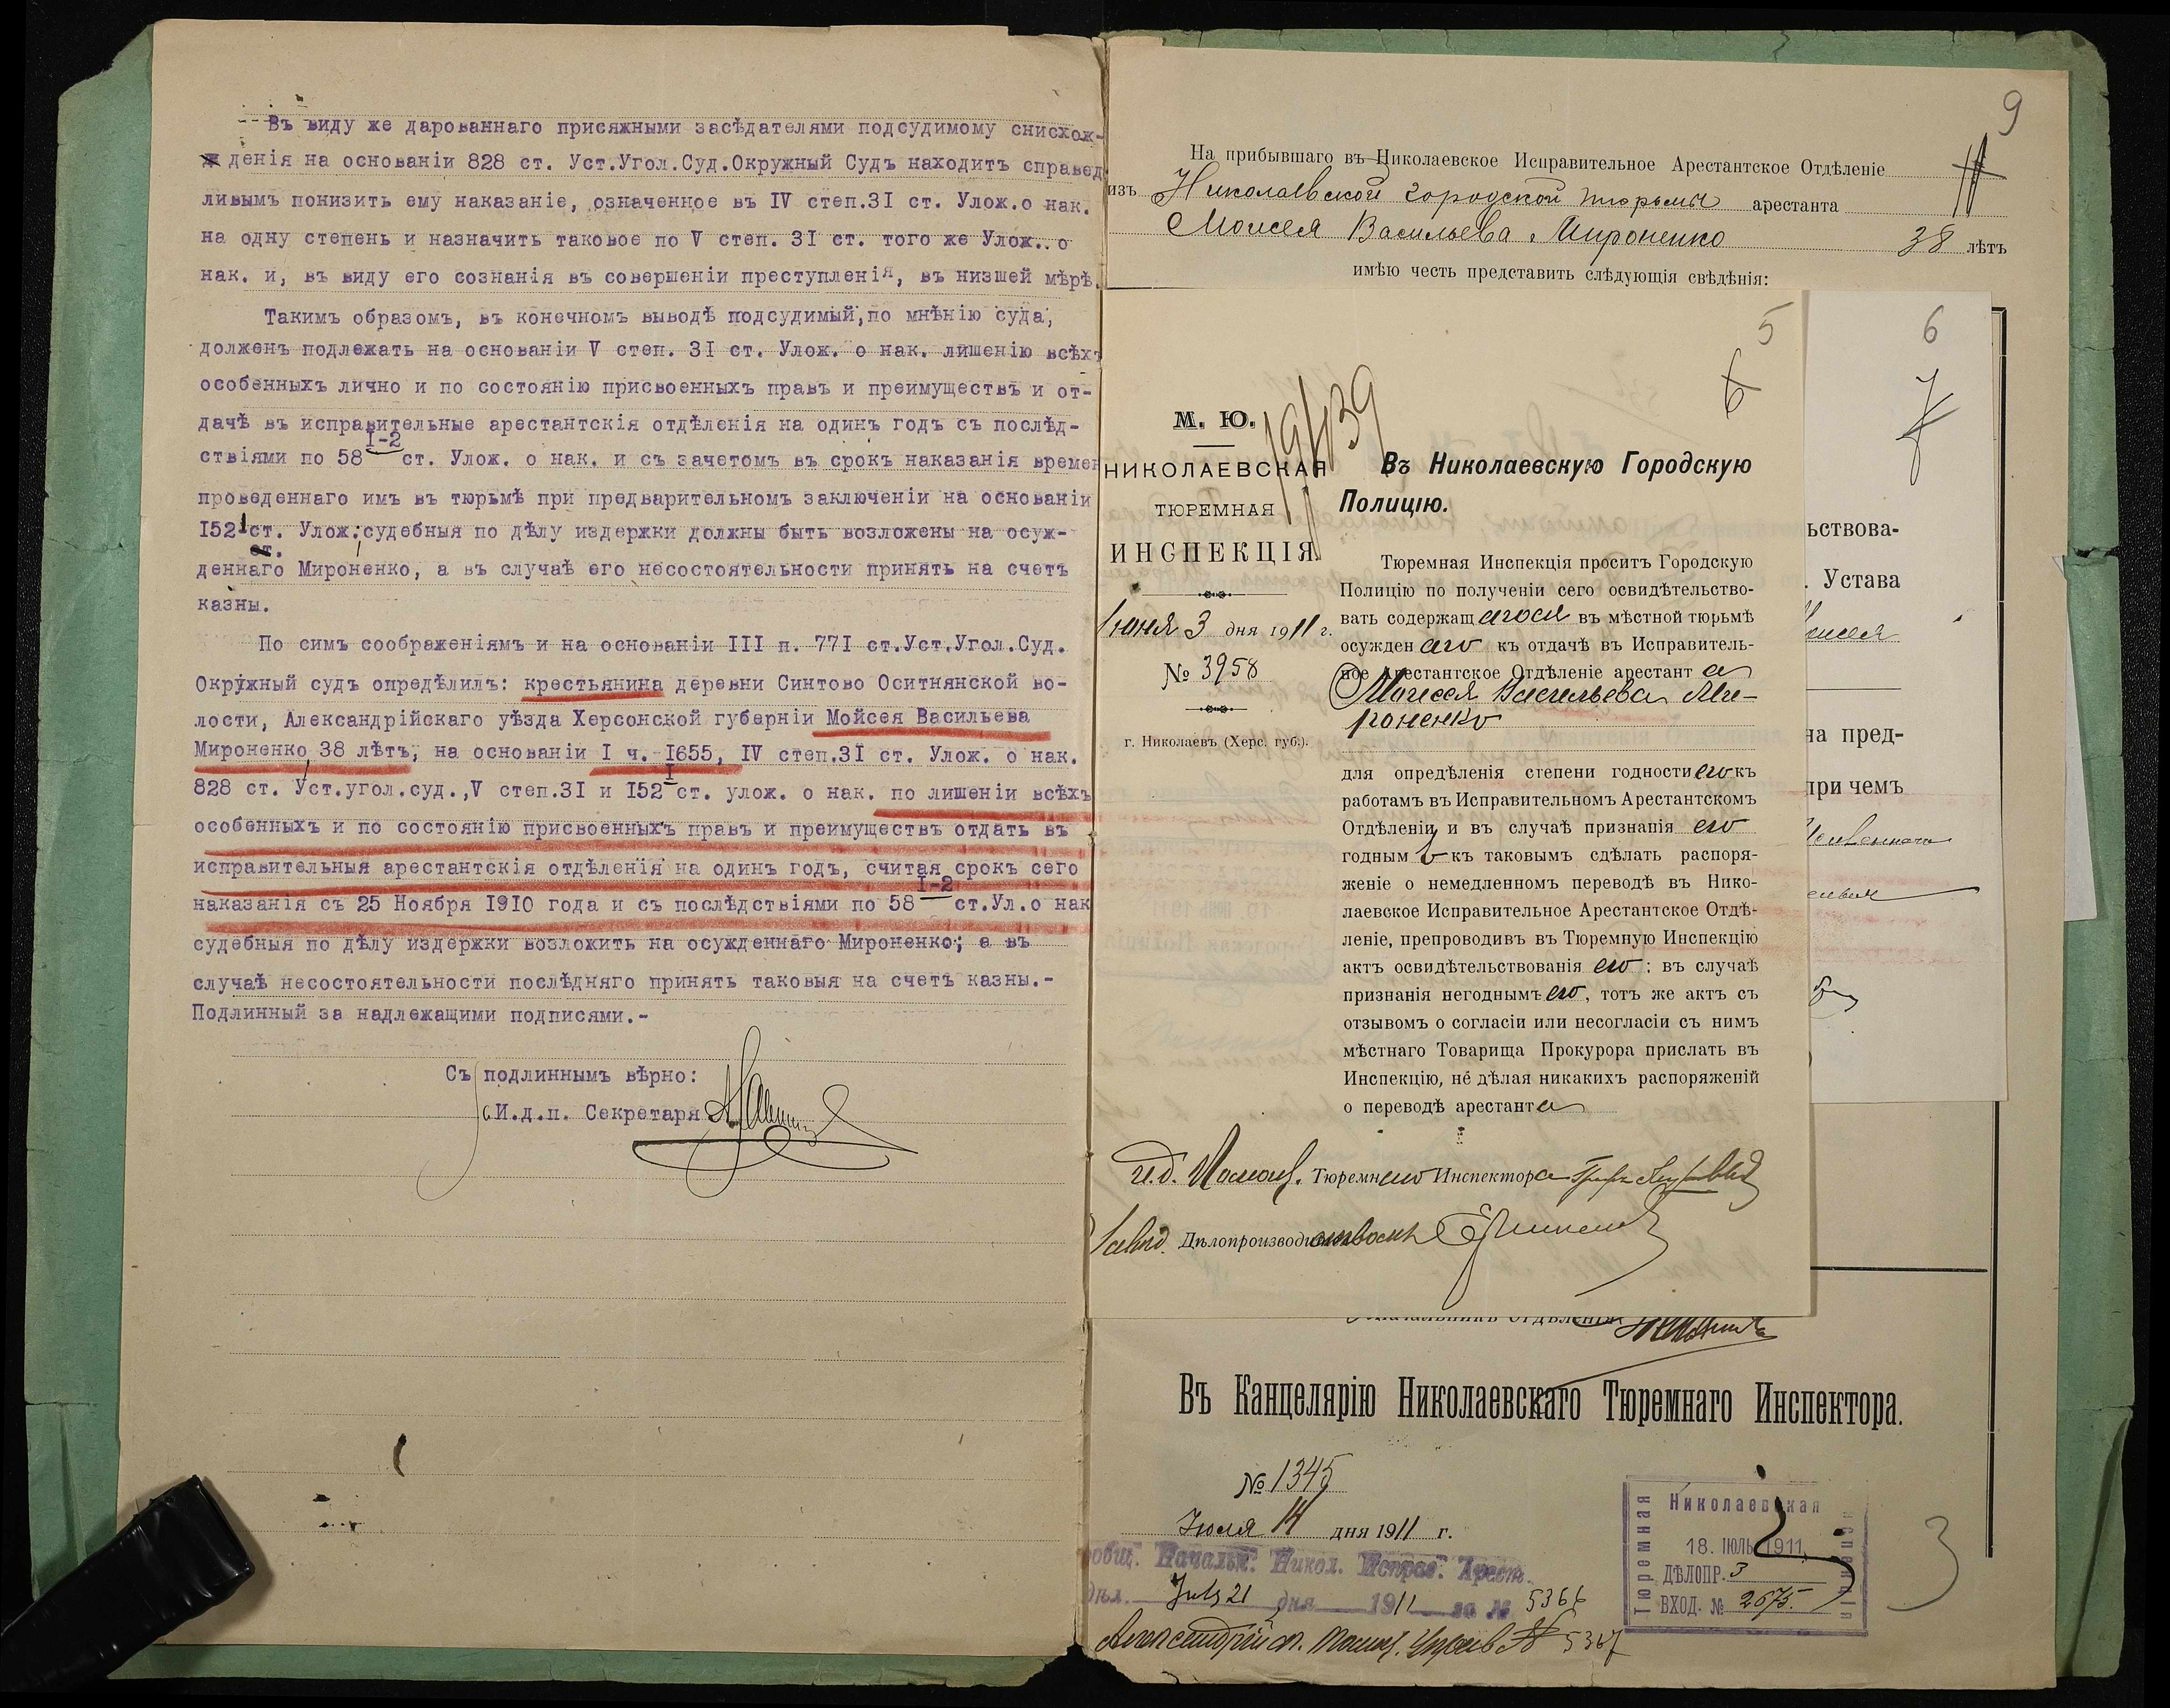 Въ виду же дарованнаго присяжными засѣдателями подсудимому снисхож-
денія на основаніи 828 ст. Уст.Угол.Суд.Окружный Судъ находитъ справед
ливымъ понизить ему наказаніе, означенное въ IV степ.3I ст. Улож.о нак.
на одну степень и назначить таковое по V степ. 3I ст. того же Улож.. о
нак. и, въ виду его сознанія въ совершеніи преступленія, въ низшей мѣрѣ.
Такимъ образомъ, въ конечномъ выводѣ подсудимый,по мнѣнію суда,
долженъ подлежать на основаніи V степ. 3I ст. Улож. о нак. лишенію всѣхъ
особенныхъ лично и по состоянію присвоенныхъ правъ и преимуществъ и от-
дачѣ въ исправительные арестантскія отдѣленія на одинъ годъ съ послѣд-
ствіями по 58 I-2 ст. Улож. о нак. и съ зачетомъ въ срокъ наказанія времен
проведеннаго имъ въ тюрьмѣ при предварительномъ заключеніи на основаніи
I52 1 ст. Улож;судебныя по дѣлу издержки должны быть возложены на осуж-
деннаго Мироненко, а въ случаѣ его несостоятельности принять на счетъ
казны.
По симъ соображеніямъ и на основаніи III п. 77I ст.Уст.Угол.Суд.
Окружный судъ опредѣлилъ: крестьянина деревни Синтово Оситнянской во-
лости, Александрійскаго уѣзда Херсонской губерніи Мойсея Васильева
Мироненко 38 лѣтъ, на основаніи I ч. I655, IV степ.3I ст. Улож. о нак.
828 ст. Уст.угол.суд.,V степ.3I и I52 I ст. улож. о нак. по лишеніи всѣхъ
особенныхъ и по состоянію присвоенныхъ правъ и преимуществъ отдать въ
исправительныя арестантскія отдѣленія на одинъ годъ, считая срокъ сего
наказанія съ 25 Ноября I9I0 года и съ послѣдствіями по 58 I-2 ст.Ул.о нак
судебныя по дѣлу издержки возложить на осужденнаго Мироненко; а въ
случаѣ несостоятельности послѣдняго принять таковыя на счетъ казны.-
Подлинный за надлежащими подписями.-
Съ подлиннымъ вѣрно:
И.д.п. Секретаря
9
На прибывшаго въ Николаевское Исправительное Арестантское Отдѣленіе
изъ Николаевской городской тюрьмы арестанта
Моисея Васильева Мироненко 38 лѣтъ
имѣю честь представить слѣдующія свѣдѣнія:
5
6
М. Ю.
НИКОЛАЕВСКАЯ
ТЮРЕМНАЯ
ИНСПЕКЦІЯ
Іюня 3 дня 1911 г.
№ 3958
г. Николаевъ (Херс. губ.).
19439
Въ Николаевскую Городскую
Полицію.
Тюремная Инспекція проситъ Городскую
Полицію по полученіи сего освидѣтельство-
вать содержащагося въ мѣстной тюрьмѣ
осужденаго къ отдачѣ въ Исправитель-
ное Арестантское Отдѣленіе арестанта
Моисея Васильева Ми-
роненко
для опредѣленія степени годности его къ
работамъ въ Исправительномъ Арестантскомъ
Отдѣленіи и въ случаѣ признанія его
годнымъ къ таковымъ сдѣлать распоря-
женіе о немедленномъ переводѣ въ Нико-
лаевское Исправительное Арестантское Отдѣ-
леніе, препроводивъ въ Тюремную Инспекцію
актъ освидѣтельствованія его; въ случаѣ
признанія негоднымъ его, тотъ же актъ съ
отзывомъ о согласіи или несогласіи съ нимъ
мѣстнаго Товарища Прокурора прислать въ
Инспекцію, не дѣлая никакихъ распоряженій
о переводѣ арестанта
и.д. Помощ. Тюремнаго Инспектора
Завѣд. Дѣлопроизводствомъ
6
7
ьствова-
. Устава
на пред-
при чемъ
Начальникъ Отдѣленія
Въ Канцелярію Николаевскаго Тюремнаго Инспектора.
№ 1345
Іюля 14 дня 1911 г.
Николаевская
Тюремная
Инспекція
18. ІЮЛЬ 1911
ДѢЛОПР. 3
ВХОД. № 2675.
3
общ. Начальн. Никол. Исправ. Арест.
дѣл. July 21 дня 1911 за № 5366
Александрійск. № 5367